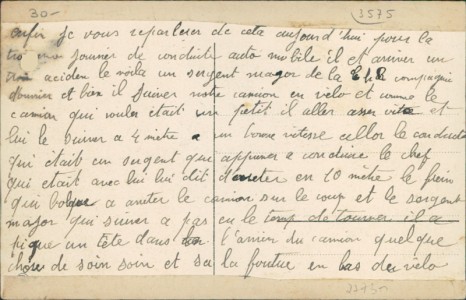 30-
3575
enfin je vous reparlerer de ceta aujourd'hui pour la
journer de conduite auto mobile il et ariver un
acciden le voila un sergent major de la compagnie
d'ouvrier et bien il suiver notre camion en velo et comme le
camion qui rouler etait un petit il aller asser vite et
lui le suiver a 4 mètre a un bonne vitesse allor le conducte
qui etait un sergent qui apprener a conduire le chef
qui etait avec lui lui dit d'areter en 10 metre le frein
qui bloque a areter le camion sur le coup et le sergent
major qui suiver a pas eu le temp de tourner il a
pique un tête dans l'arrier du camion quelque
chose de soin soin et sa la foutue en bas du vélo